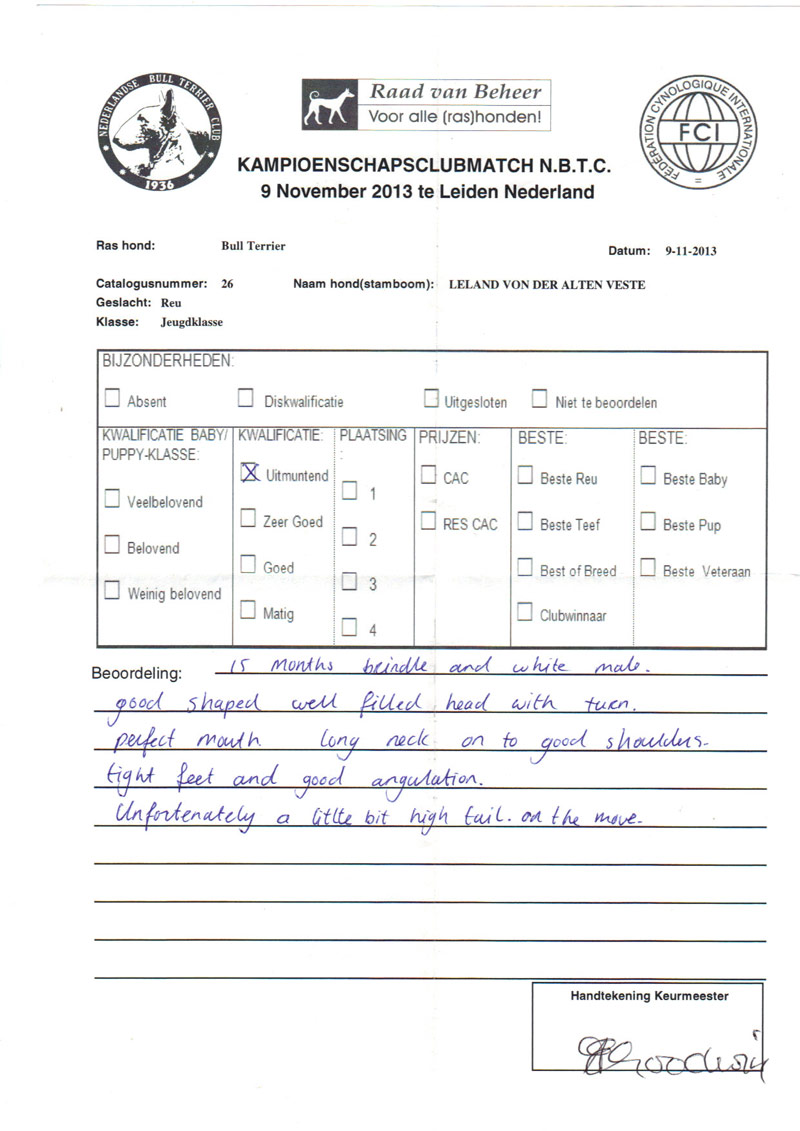 NEDERLANDSE BULL TERRIER CLUB
1936
Raad van Beheer
Voor alle (ras)honden!
FÉDÉRATION CYNOLOGIQUE INTERNATIONALE
FCI
KAMPIOENSCHAPSCLUBMATCH N.B.T.C.
9 November 2013 te Leiden Nederland
Ras hond: Bull Terrier
Datum: 9-11-2013
Catalogusnummer: 26 Naam hond(stamboom): LELAND VON DER ALTEN VESTE
Geslacht: Reu
Klasse: Jeugdklasse
BIJZONDERHEDEN:
Absent Diskwalificatie Uitgesloten Niet te beoordelen
KWALIFICATIE BABY/
PUPPY-KLASSE:
Veelbelovend
Belovend
Weinig belovend
KWALIFICATIE:
Uitmuntend
Zeer Goed
Goed
Matig
PLAATSING
:
1
2
3
4
PRIJZEN:
CAC
RES CAC
BESTE:
Beste Reu
Beste Teef
Best of Breed
Clubwinnaar
BESTE:
Beste Baby
Beste Pup
Beste Veteraan
Beoordeling: 15 months breindle and white male.
good shaped well filled head with turn.
perfect mouth. long neck on to good shoulders.
tight feet and good angulation.
Unfortenately a little bit high tail. on the move.
Handtekening Keurmeester